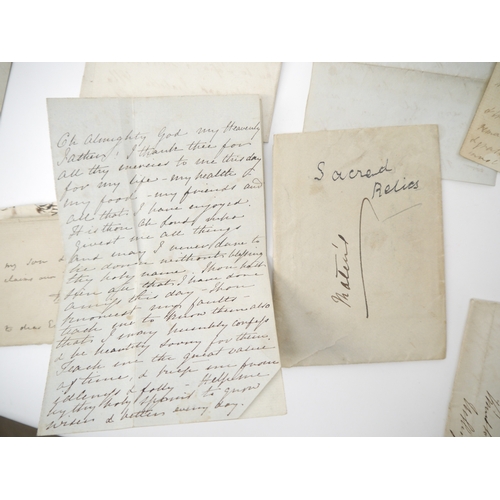 Oh Almighty God my Heavenly
Father! I thank thee for
all thy mercies to me this day
for my life - my health &
my food - my friends and
all that I have enjoyed.
It is thou Oh Lord, who
givest me all things
and may I never dare to
be done without blessing
thy holy name. Thou hast
seen all that I have done
amiss this day - Thou
knowest my faults -
teach me to know them also
that I may humbly confess
& be heartily sorry for them.
Teach me the great value
of time, & keep me from
idleness & folly - Help me
by thy holy Spirit to grow
wiser & better every day.
Sacred
Relics
my Son &
to dear